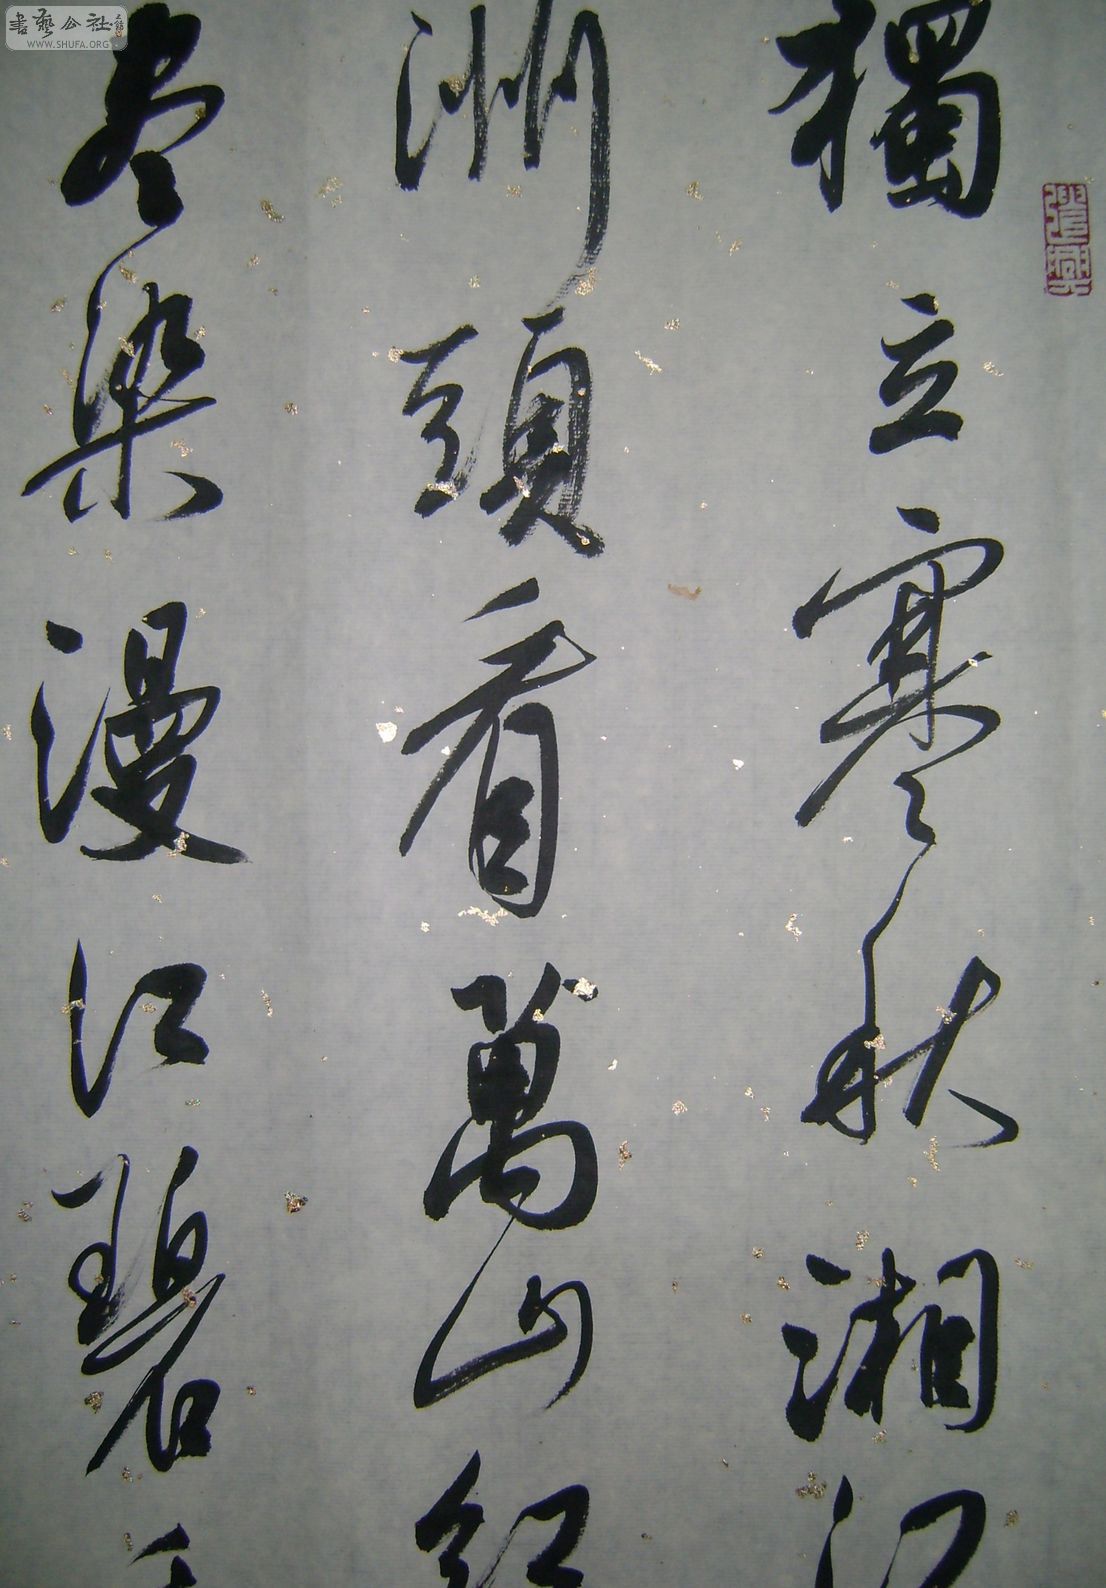 獨立寒秋湘江
洲頭看萬山紅
尽染漫江碧
書藝公社
WWW.SHUFA.ORG